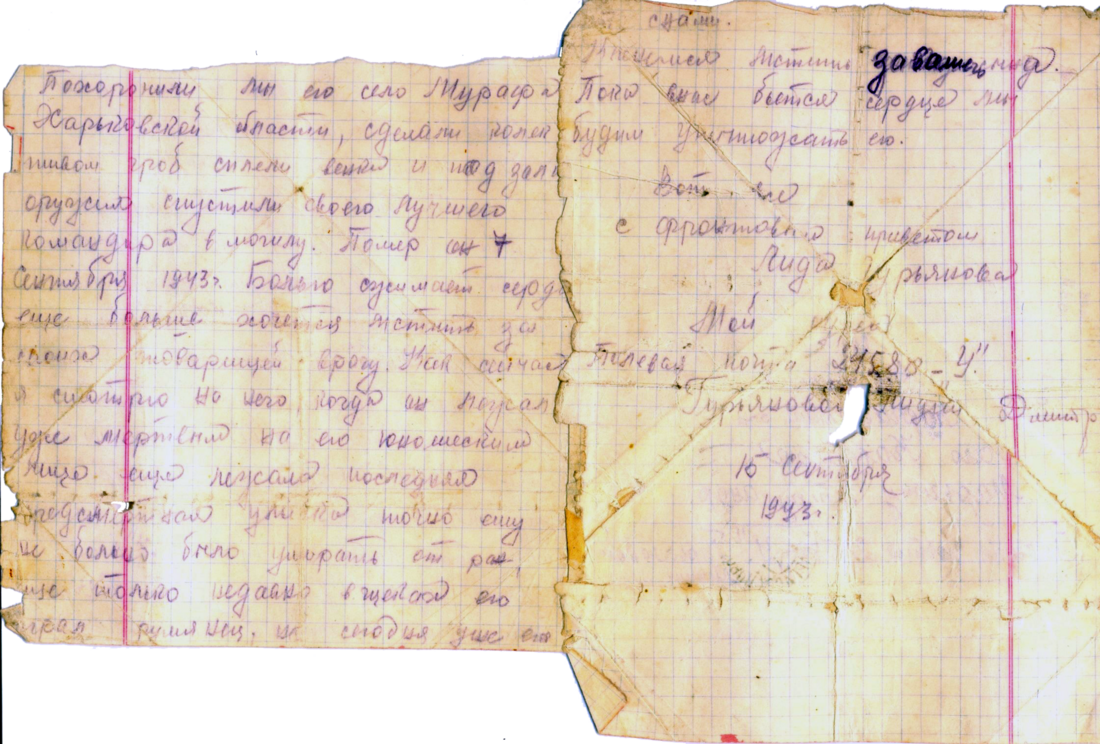 Похоронили мы его село Мурафа
Харьковской области, сделали
гроб сплели венки и под залп
орудия спустили своего лучшего
командира в могилу. Помер он 7
Сентября 1943г. Больно сжимает серд
еще больше хочется мстить за
товарищей врагу. Как сейчас
я смотрю на него, когда он лежал
уже мертвый на его юношеским
лице еще лежала последняя
предсмертная улыбка точно ему
не больно было умирать от ран,
еще только недавно в щеках его
играл румянец, но сегодня уже он
сцами.
мстить за вашего
Пока внас бьется сердце мы
будим уничтожать его.
Вот и
с фронтовым приветом
Лида Гурьяновая
Мой адрес
Полевая почта 24588 - У"
Гурьяновой Лидии Дмитр
15 Сентября
1943г.